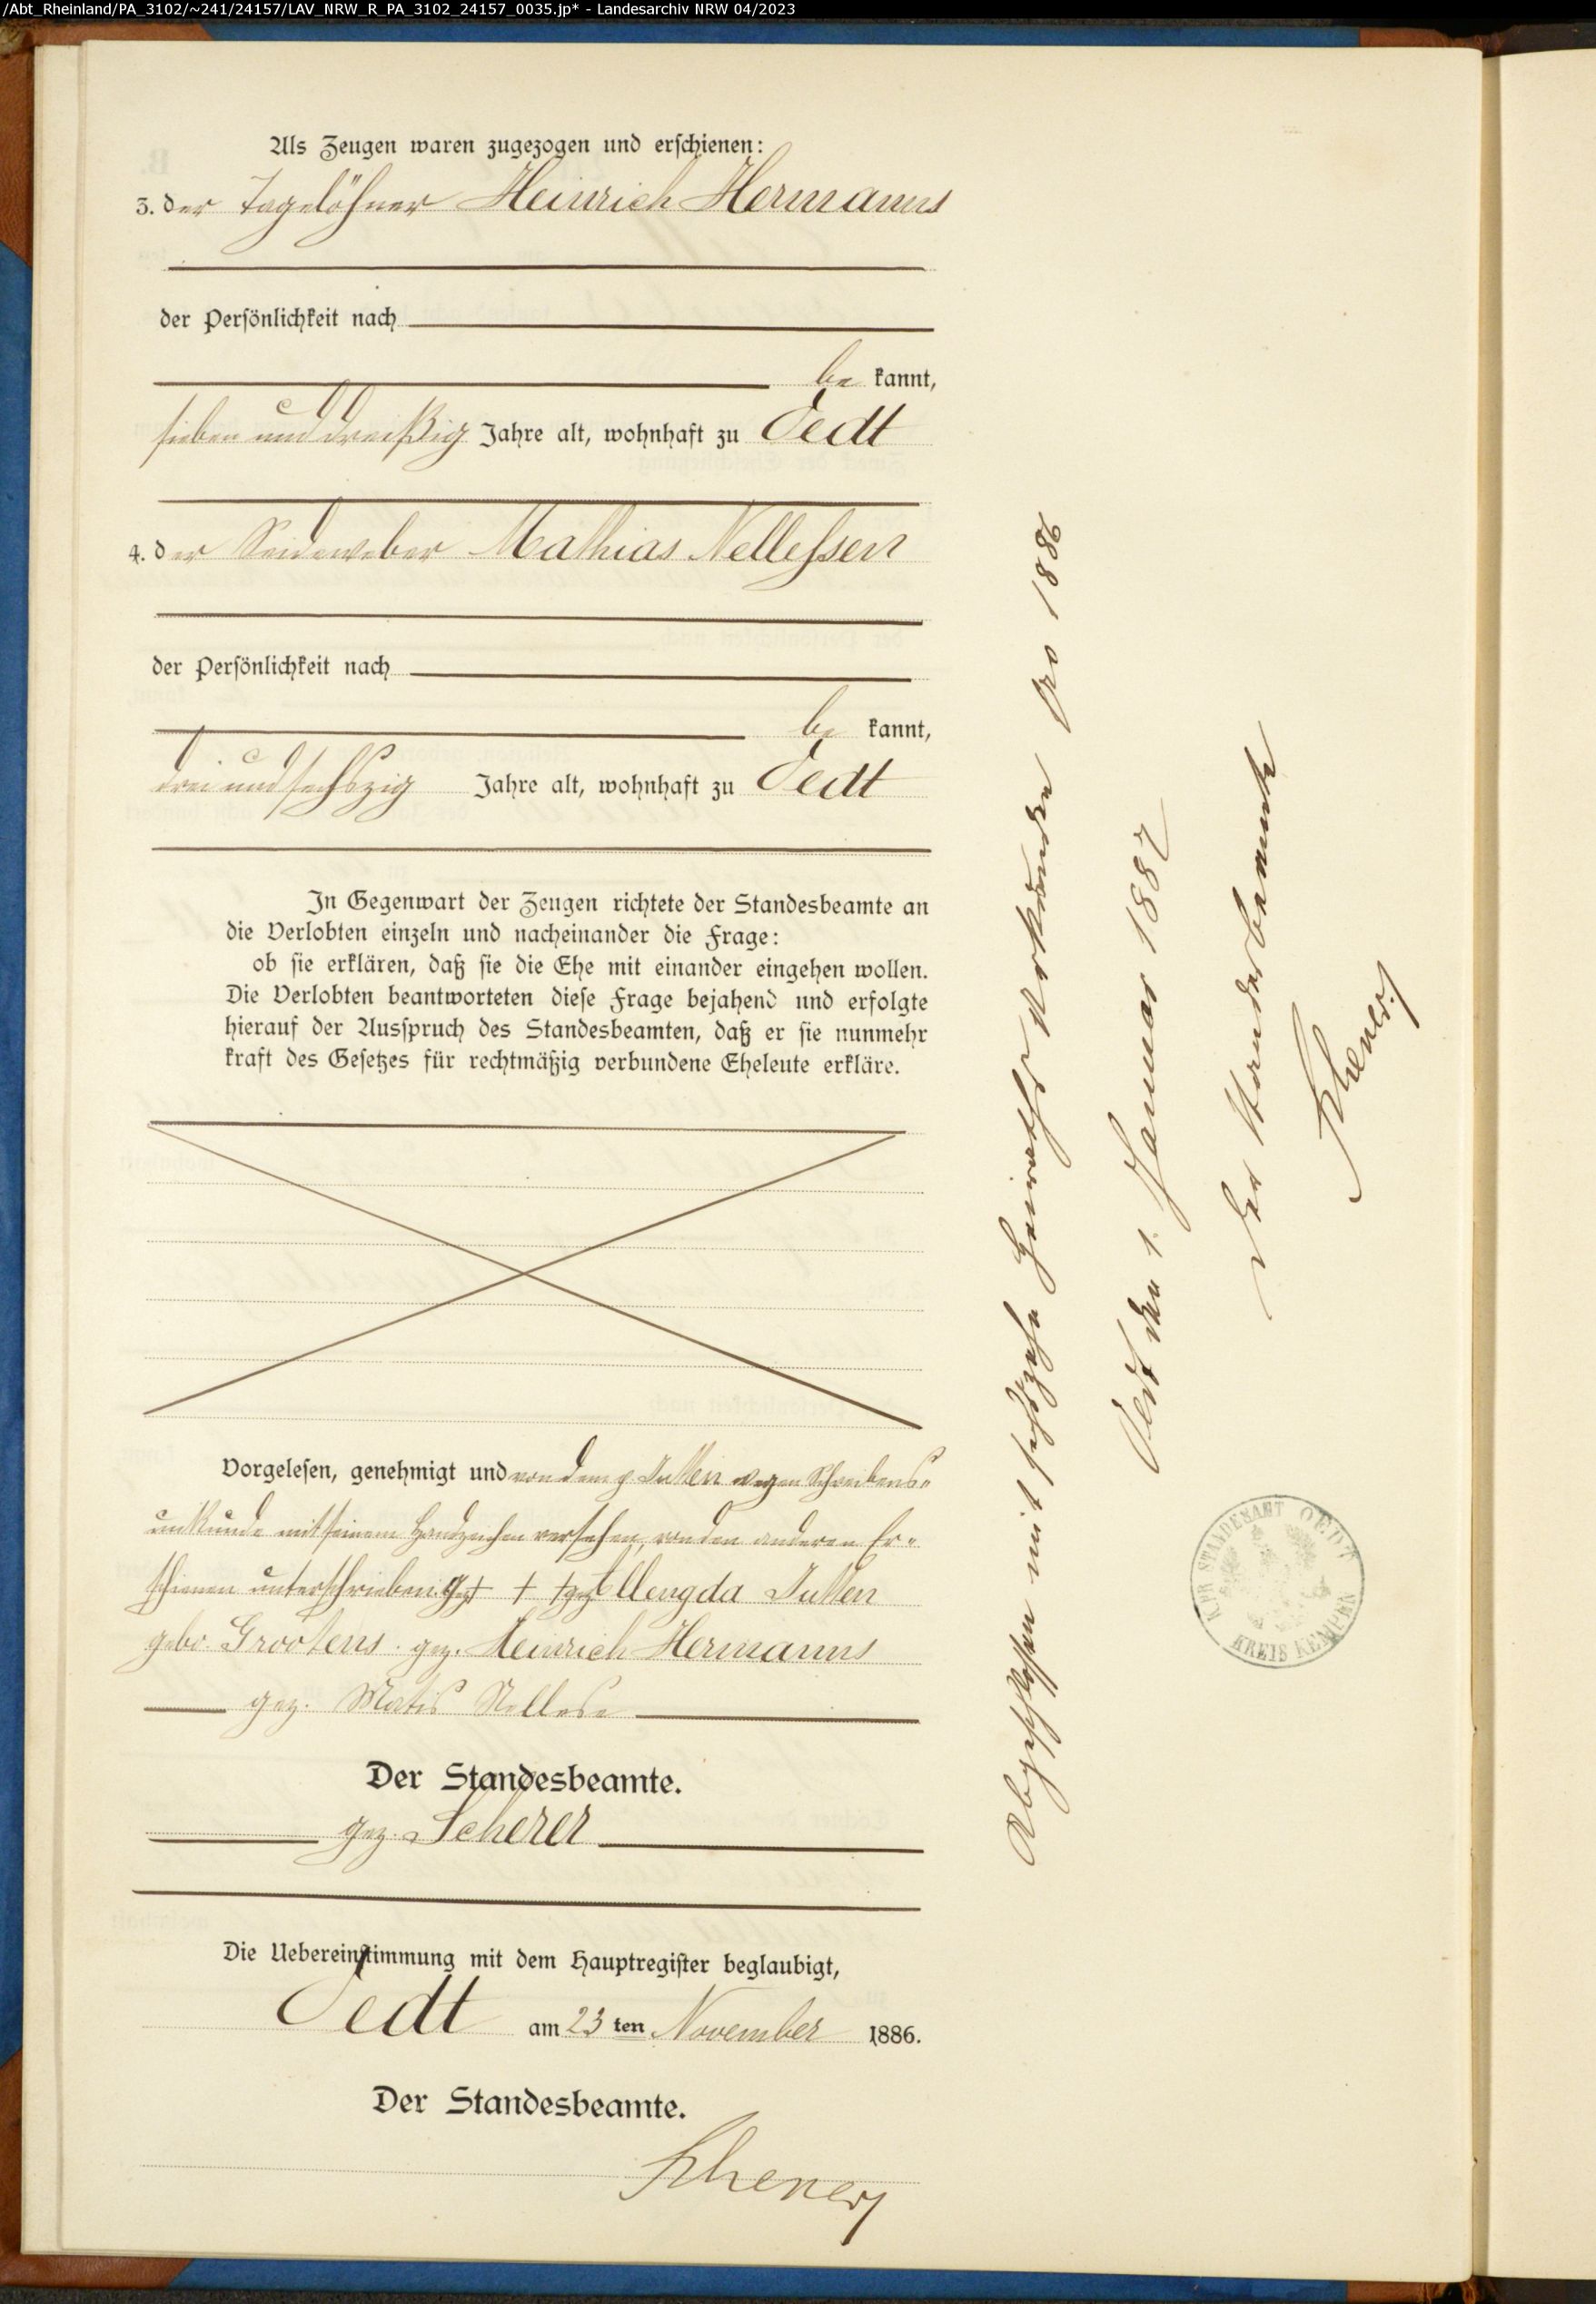 /Abt_Rheinland/PA_3102/~241/24157/LAV_NRW_R_PA_3102_24157_0035.jp* - Landesarchiv NRW 04/2023
Als Zeugen waren zugezogen und erschienen:
3. der Tagelöhner Heinrich Hermanns
der Persönlichkeit nach
be kannt,
sieben und dreißig Jahre alt, wohnhaft zu Oedt
4. der Seideweber Mathias Nellessen
der Persönlichkeit nach
be kannt,
drei und sechszig Jahre alt, wohnhaft zu Oedt
In Gegenwart der Zeugen richtete der Standesbeamte an
die Verlobten einzeln und nacheinander die Frage:
ob sie erklären, daß sie die Ehe mit einander eingehen wollen.
Die Verlobten beantworteten diese Frage bejahend und erfolgte
hierauf der Ausspruch des Standesbeamten, daß er sie nunmehr
kraft des Gesetzes für rechtmäßig verbundene Eheleute erkläre.
Vorgelesen, genehmigt und von dem p. wegen Schreibens-
unkunde mit seinem Handzeichen versehen, von den anderen Er-
schienen unterschrieben. gez + + +
geb. Grootens. gez. Heinrich Hermanns
gez. Matis Nellese
Der Standesbeamte.
gez. Scherer
Die Uebereinstimmung mit dem Hauptregister beglaubigt,
Oedt am 23 ten November 1886.
Der Standesbeamte.
Scherer
Abgeschlossen mit sechszehn Heiraths Urkunden pro 1886
Oedt den 1. Januar 1887
Der Standesbeamte
Scherer
KPR STANDESAMT OEDT
KREIS KEMPEN